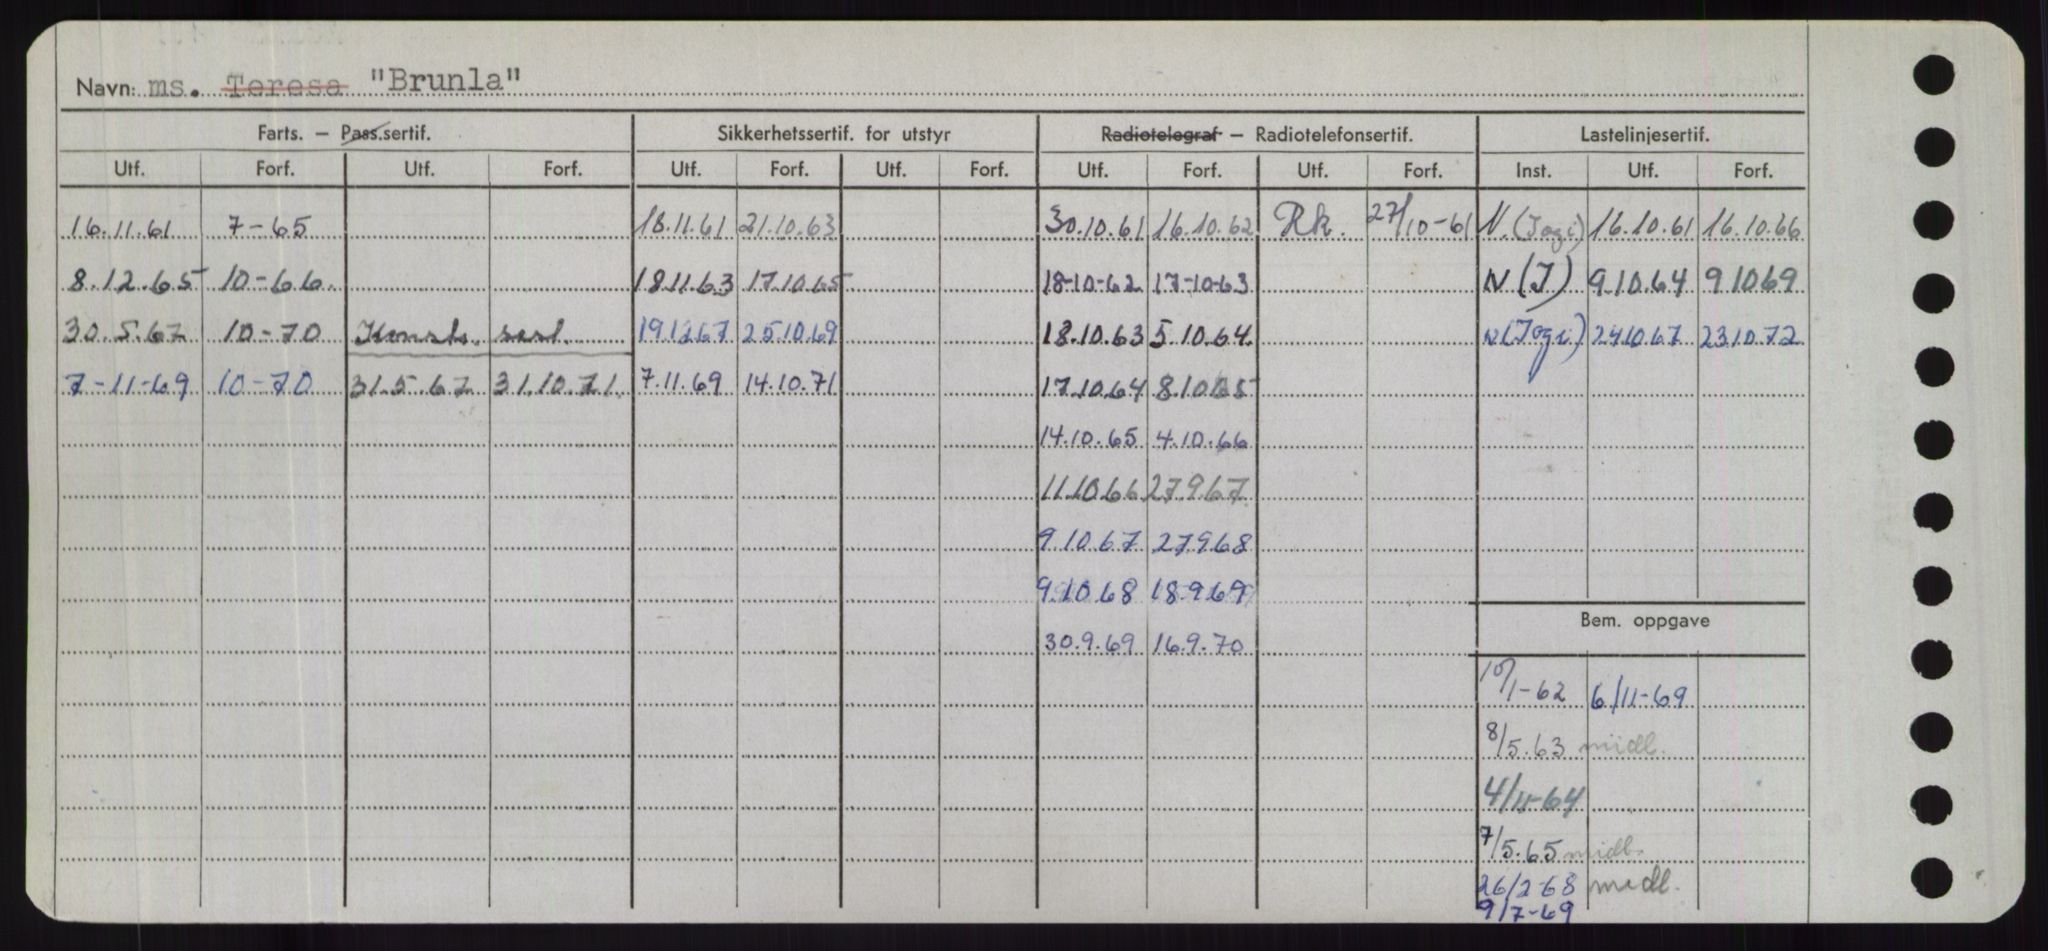 Navn: ms. Teresa "Brunla"
Farts. — Pass.sertif. Sikkerhetssertif. for utstyr Radiotelegraf — Radiotelefonsertif. Lastelinjesertif.
Utf. Forf. Utf. Forf. Utf. Forf. Utf. Forf. Utf. Forf. Utf. Forf. Inst. Utf. Forf.
16.11.61 7-65 18.11.61 21.10.63 30.10.61 16.10.62 Rk. 27/10-61 N.(Iogi) 16.10.61 16.10.66
8.12.65 10-66. 18.11.63 17.10.65 18-10-62 17-10-63 N(I) 9.10.64 9.10.69
30.5.67 10-70 Konstr. sert. 19.12.67 25.10.69 18.10.63 5.10.64 N(Iogi) 24.10.67 23.10.72
7-11-69 10-70 31.5.67 31.10.71. 7.11.69 14.10.71 17.10.64 8.10.65
14.10.65 4.10.66
11.10.66 27.9.67
9.10.67 27.9.68
9.10.68 18.9.69
30.9.69 16.9.70
Bem. oppgave
10/1-62 6/11-69
8/5.63 midl.
4/11-64
7/5.65 midl.
26/2-68 midl.
9/7-69